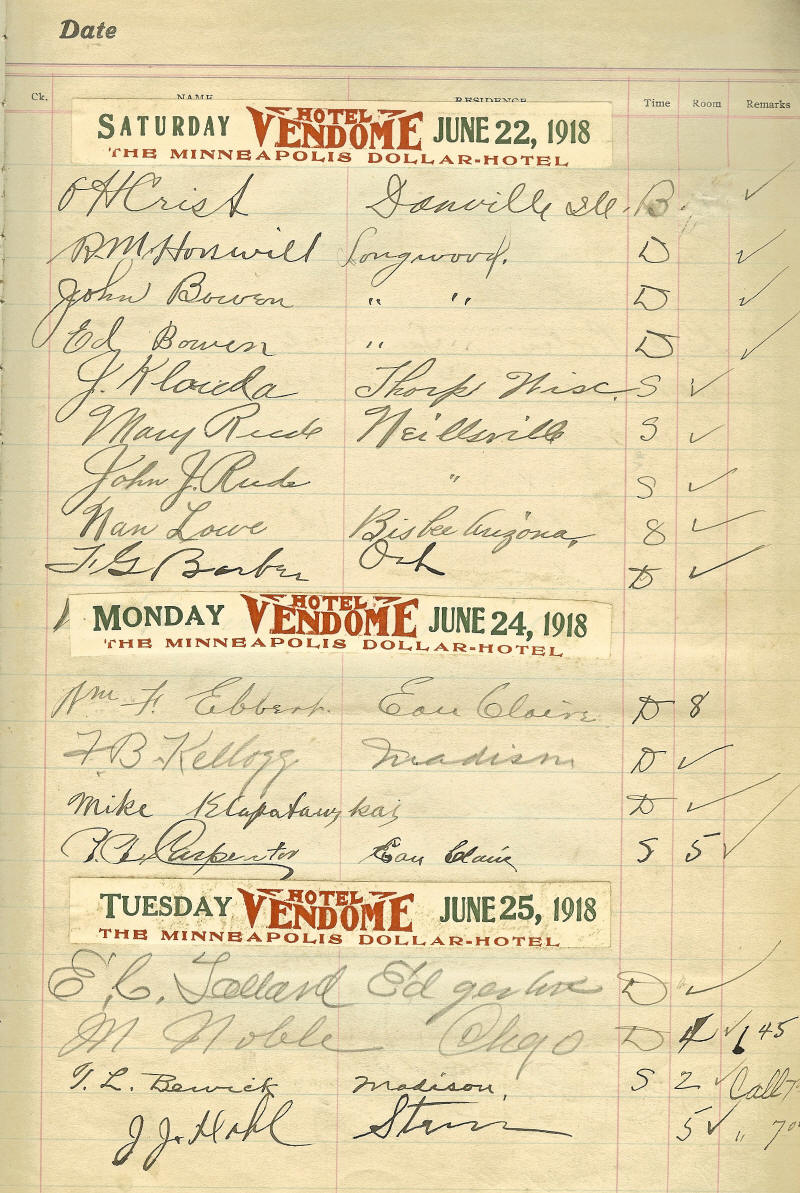 Date
Ck. NAME RESIDENCE Time Room Remarks
SATURDAY HOTEL VENDOME JUNE 22, 1918
THE MINNEAPOLIS DOLLAR-HOTEL
O H Crist Danville Ill. B ✓
R M Honswill Longwood. D ✓
John Bowen " " D ✓
Ed Bowen " D ✓
J. Klouda Thorp Wisc. S ✓
Mary Rude Neillsville S ✓
John J. Rude " S ✓
Nan Lowe Bisbee Arizona, 8 ✓
F. G Barber Osh D ✓
MONDAY HOTEL VENDOME JUNE 24, 1918
THE MINNEAPOLIS DOLLAR-HOTEL
Wm F. Ebbert Eau Claire D 8
F B Kellogg Madison D ✓
Mike D ✓
Carpenter Eau Claire S 5 ✓
TUESDAY HOTEL VENDOME JUNE 25, 1918
THE MINNEAPOLIS DOLLAR-HOTEL
E. C. Tallard D ✓
M Noble Chgo D 4 ✓ 6 45
T. L. Bewick Madison, S 2 ✓ Call
J. J. Hohl 5 ✓ "